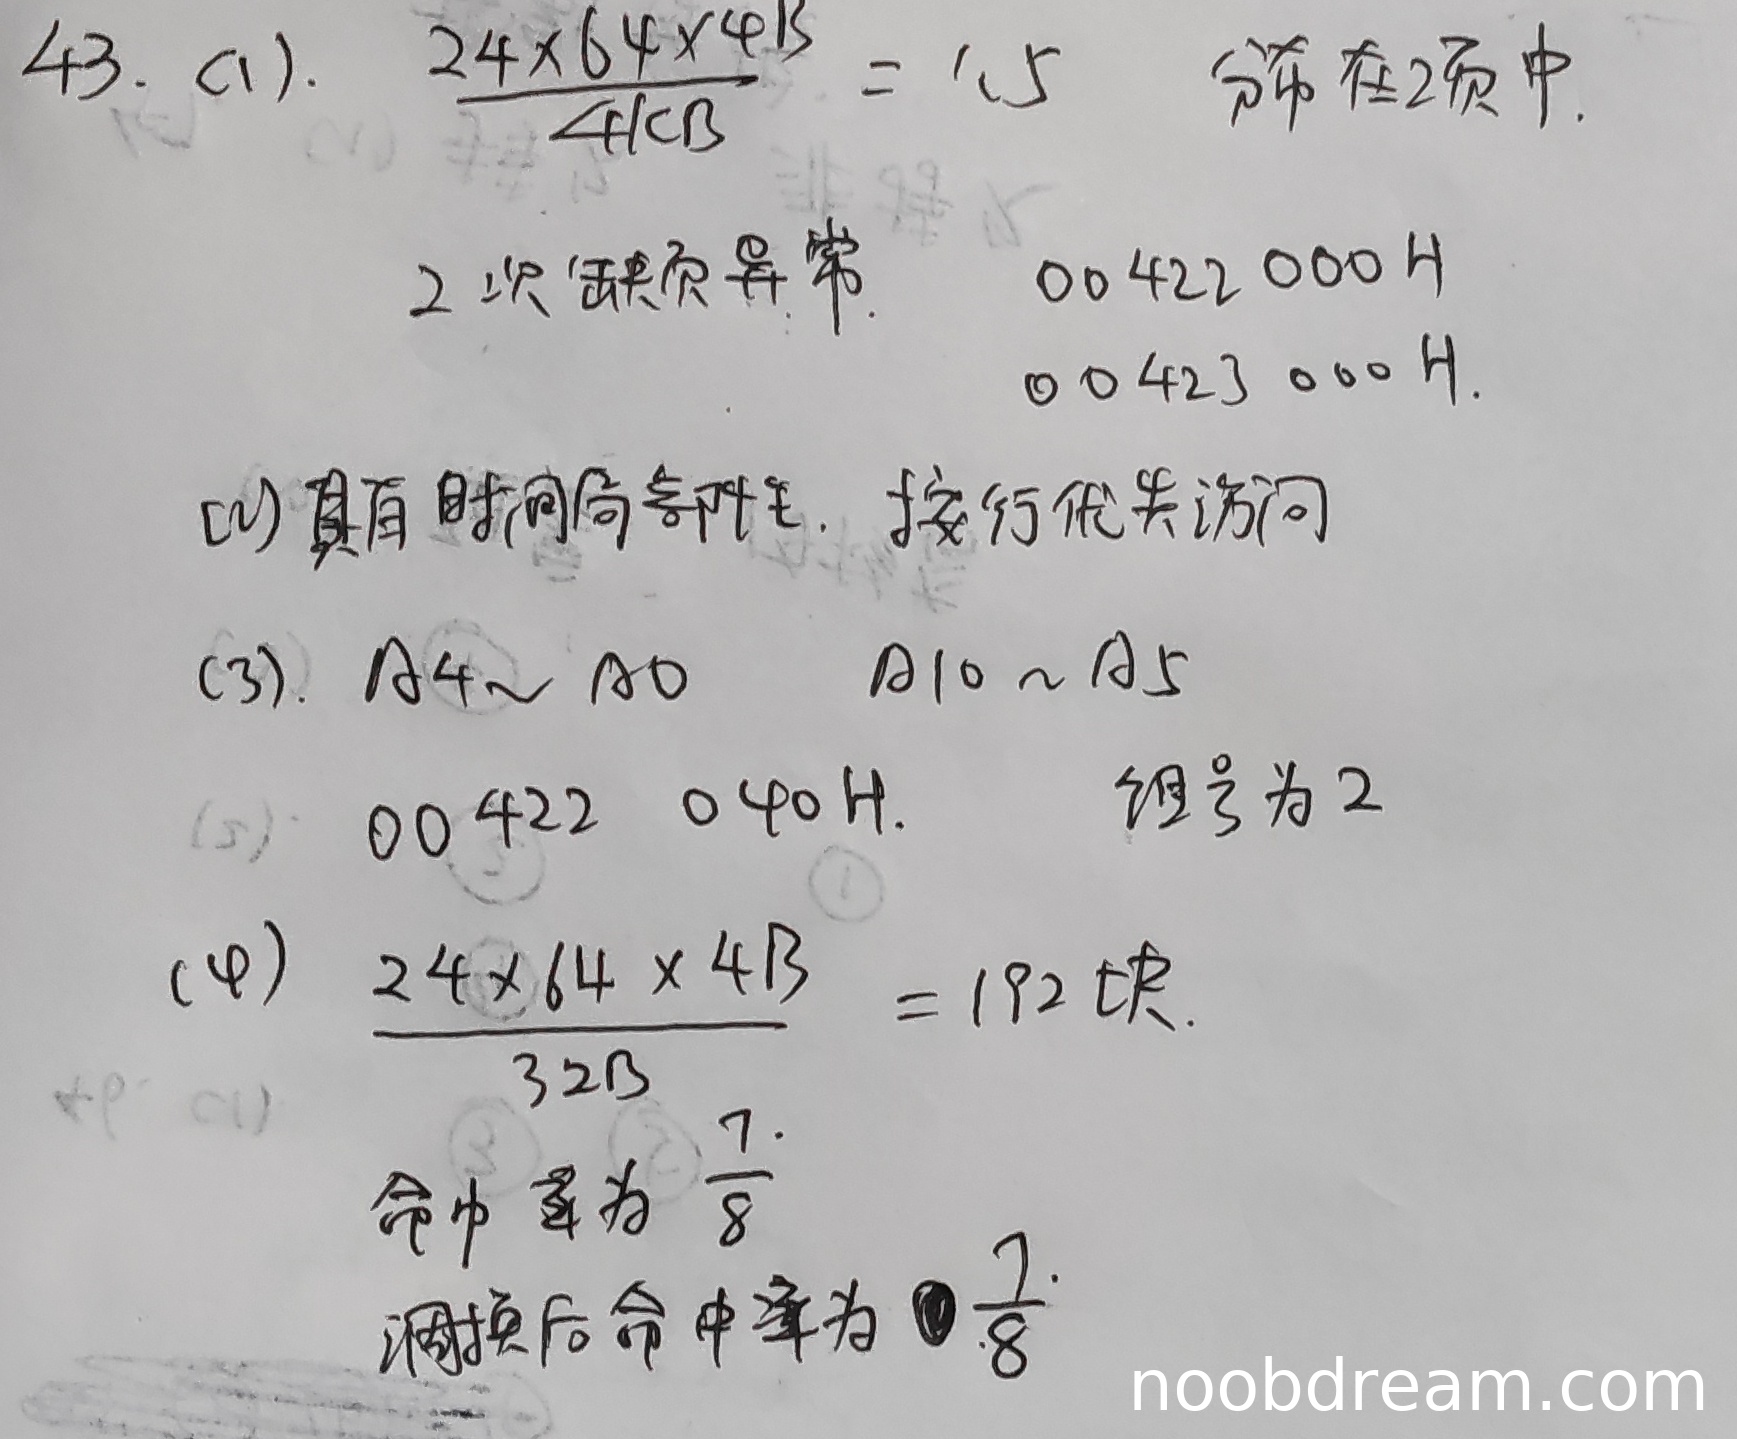 43. (1). 24×64×4B / 4KB = 1.5 分布在2页中.
2次缺页异常. 00422000H
00423000H.
(2) 具有时间局部性. 按行优先访问
(3). A4~A0 A10~A5
00422 040H. 组号为2
(4) 24×64×4B / 32B = 192块.
命中率为 7/8.
调换后命中率为 7/8.
noobdream.com